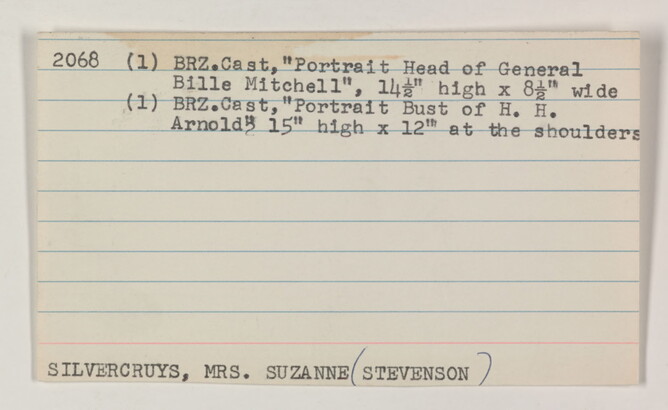 2068 (1) BRZ.Cast,"Portrait Head of General
Bille Mitchell", 14½" high x 8½" wide
(1) BRZ.Cast,"Portrait Bust of H. H.
Arnold" 15" high x 12" at the shoulders
SILVERCRUYS, MRS. SUZANNE (STEVENSON )